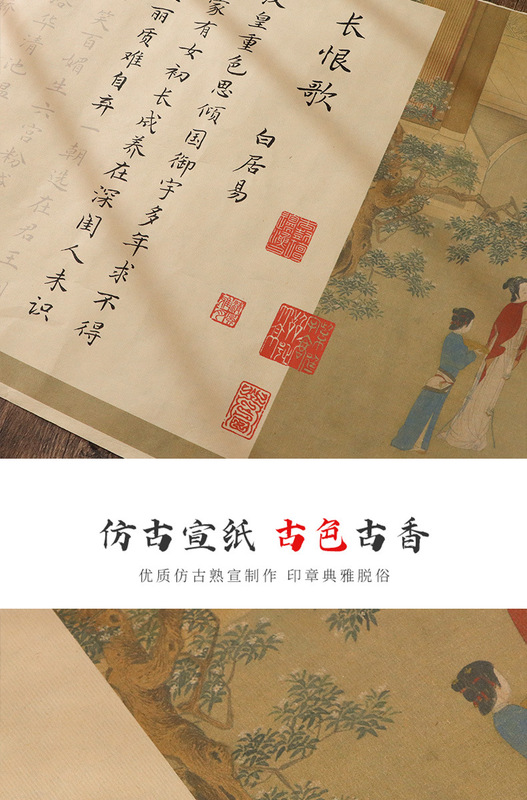 长恨歌
白居易
皇重色思倾国御宇多年求不得
家有女初长成养在深闺人未识
丽质难自弃一朝选在君王
笑百媚生六宫粉
华清池
仿古宣纸 古色古香
优质仿古熟宣制作 印章典雅脱俗